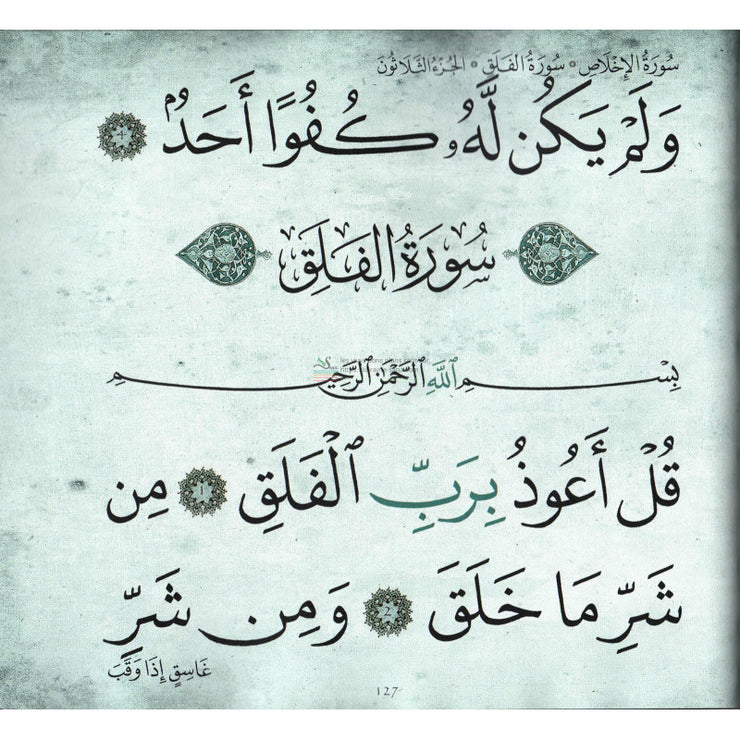 سُورَةُ الإِخْلَاصِ * سُورَةُ الفَلَقِ * الجُزْءُ الثَّلَاثُونَ
وَلَمْ يَكُن لَّهُۥ كُفُوًا أَحَدٌۢ 4
سُورَةُ الفَلَقِ
بِسْمِ ٱللَّهِ ٱلرَّحْمَٰنِ ٱلرَّحِيمِ
قُلْ أَعُوذُ بِرَبِّ ٱلْفَلَقِ 1 مِن
شَرِّ مَا خَلَقَ 2 وَمِن شَرِّ
غَاسِقٍ إِذَا وَقَبَ
127